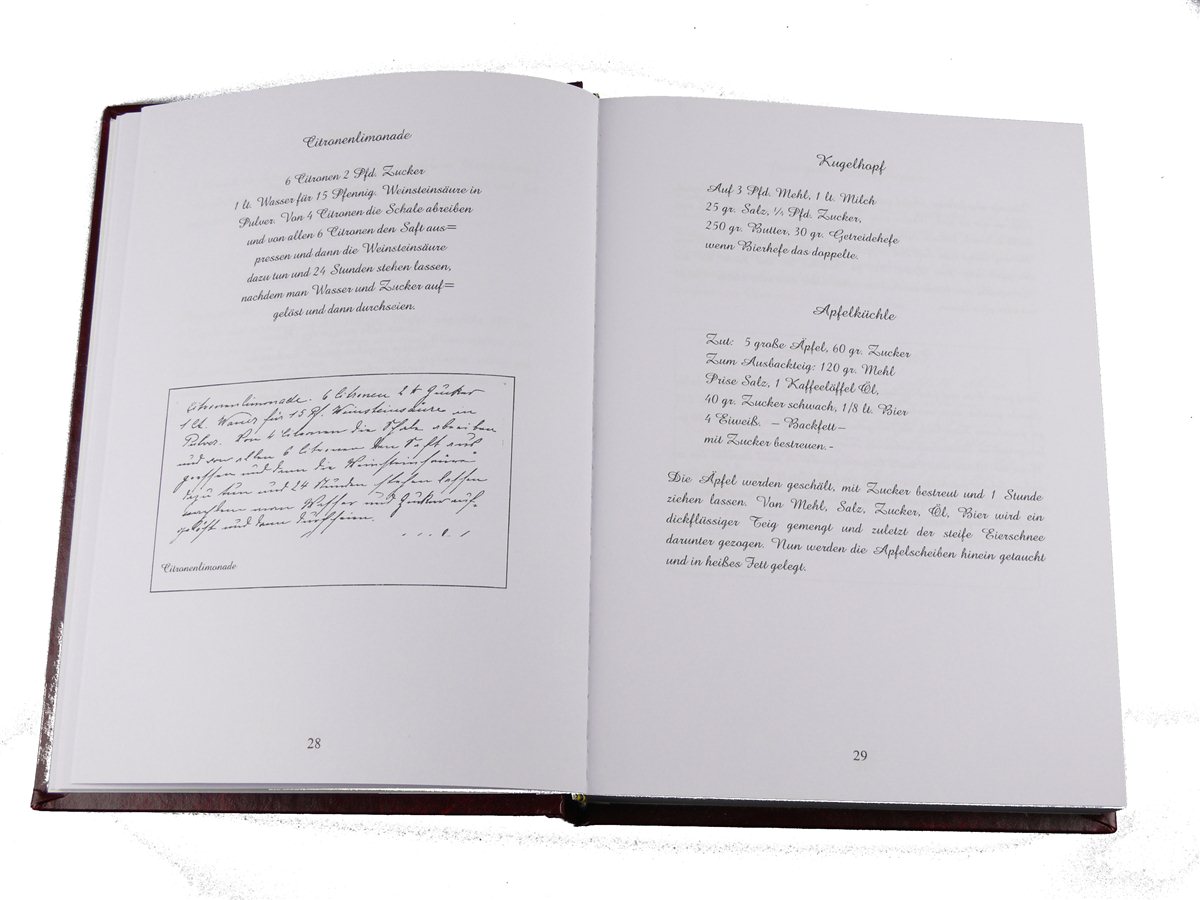 Citronenlimonade
6 Citronen 2 Pfd. Zucker
1 lt. Wasser für 15 Pfennig. Weinsteinsäure in
Pulver. Von 4 Citronen die Schale abreiben
und von allen 6 Citronen den Saft aus=
pressen und dann die Weinsteinsäure
dazu tun und 24 Stunden stehen lassen,
nachdem man Wasser und Zucker auf=
gelöst und dann durchseien.
Citronenlimonade. 6 Citronen 2 Zucker
1 lt. Wasser für 15 Pf. Weinsteinsäure in
Pulver. Von 4 Citronen die Schale abreiben
und von allen 6 Citronen den Saft aus
pressen und dann die Weinsteinsäure
dazu tun und 24 Stunden stehen lassen
nachdem man Wasser und Zucker auf-
gelöst und dann durchseien.
Citronenlimonade
28
Kugelhopf
Auf 3 Pfd. Mehl, 1 lt. Milch
25 gr. Salz, ¼ Pfd. Zucker,
250 gr. Butter, 30 gr. Getreidehefe
wenn Bierhefe das doppelte.
Apfelküchle
Zut: 5 große Äpfel, 60 gr. Zucker
Zum Ausbackteig: 120 gr. Mehl
Prise Salz, 1 Kaffeelöffel Öl,
40 gr. Zucker schwach, 1/8 lt. Bier
4 Eiweiß. – Backfett –
mit Zucker bestreuen.-
Die Äpfel werden geschält, mit Zucker bestreut und 1 Stunde
ziehen lassen. Von Mehl, Salz, Zucker, Öl, Bier wird ein
dickflüssiger Teig gemengt und zuletzt der steife Eierschnee
darunter gezogen. Nun werden die Apfelscheiben hinein getaucht
und in heißes Fett gelegt.
29